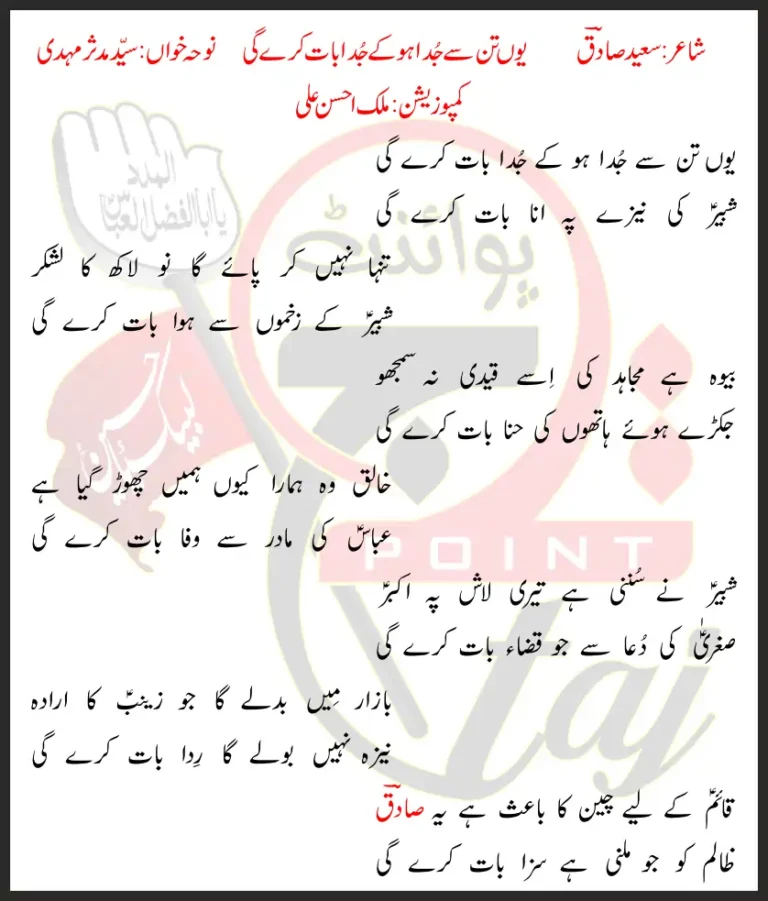 شاعر: سعید صادقؔ یوں تن سے جُدا ہو کے جُدا بات کرے گی نوحہ خواں: سیّد مدثر مہدی
کمپوزیشن: ملک احسن علی
یوں تن سے جُدا ہو کے جُدا بات کرے گی
شبیرؑ کی نیزے پہ انا بات کرے گی
تنہا نہیں کر پائے گا نو لاکھ کا لشکر
شبیرؑ کے زخموں سے ہوا بات کرے گی
بیوہ ہے مجاہد کی اِسے قیدی نہ سمجھو
جکڑے ہوئے ہاتھوں کی حنا بات کرے گی
خالق وہ ہمارا کیوں ہمیں چھوڑ گیا ہے
عباسؑ کی مادر سے وفا بات کرے گی
شبیرؑ نے سُننی ہے تیری لاش پہ اکبرؑ
صغریٰؑ کی دُعا سے جو قضاء بات کرے گی
بازار مِیں بدلے گا جو زینبؑ کا ارادہ
نیزہ نہیں بولے گا رِدا بات کرے گی
قائمؑ کے لیے چین کا باعث ہے یہ صادقؔ
ظالم کو جو ملنی ہے سزا بات کرے گی
المدد
یا ابالفضل العباسؑ
پوائنٹ
لبیک یا حسینؑ
POINT
taj